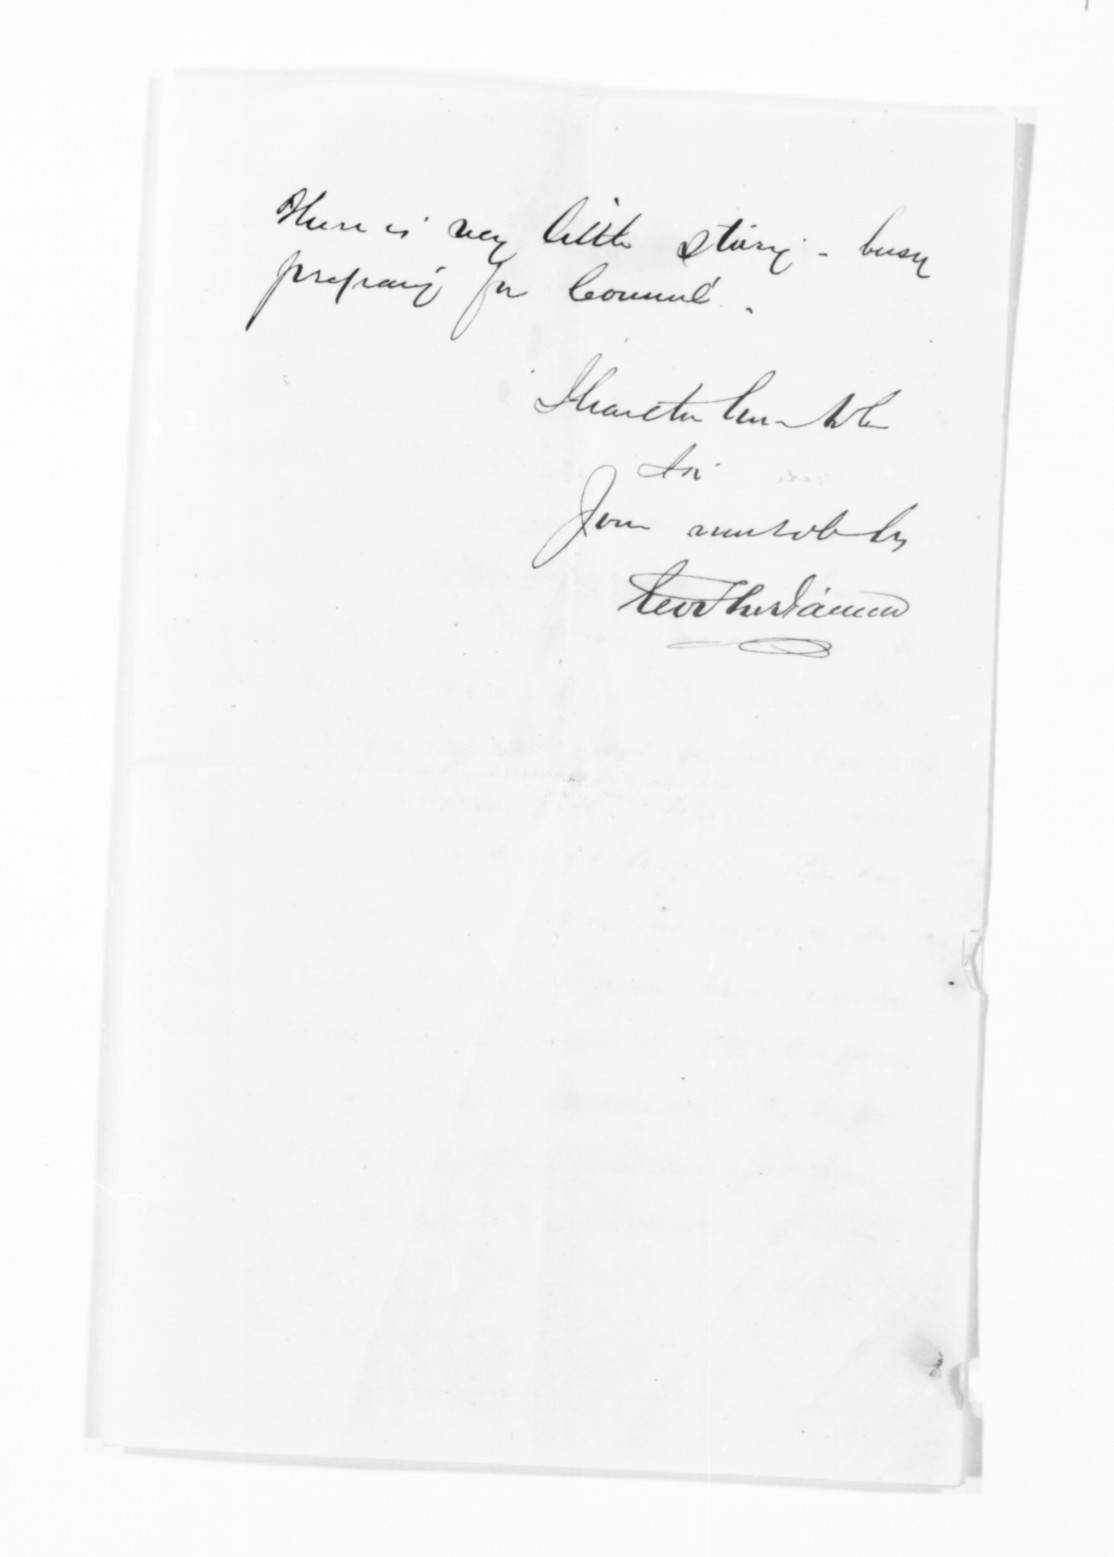 There is very little stirring - busy
preparing for Council.
I have the honor to be
Sir
Your most obt Sv